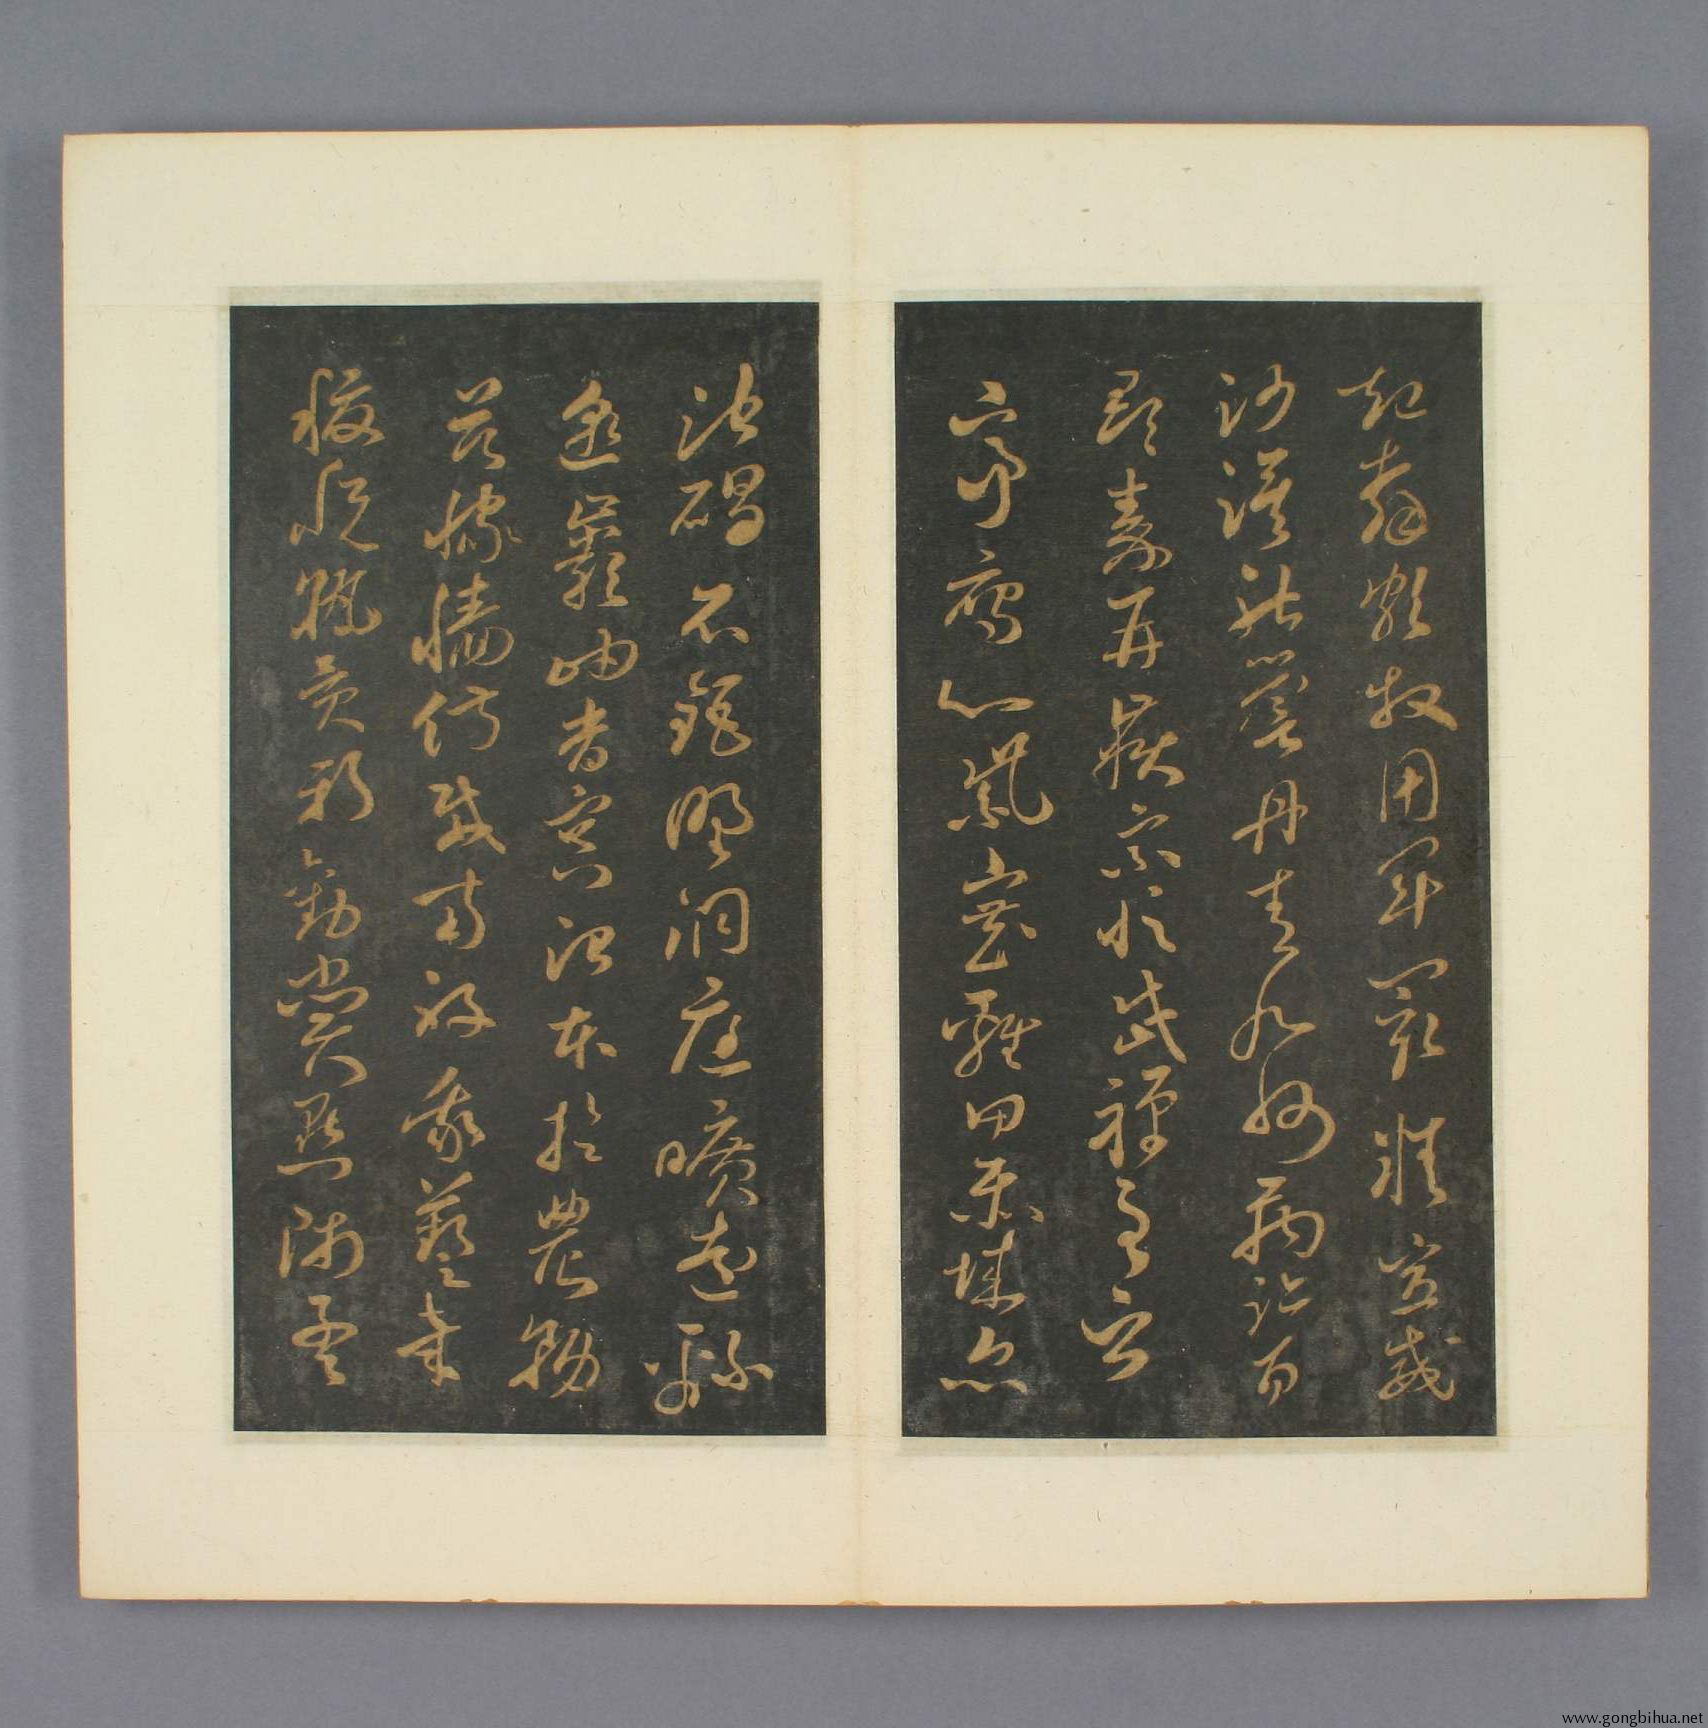 起翦頗牧用軍最精宣威
沙漠馳譽丹青九州禹跡百
郡秦并嶽宗恒岱禪主云
亭雁門紫塞雞田赤城昆
池碣石鉅野洞庭曠遠綿
邈巖岫杳冥治本於農務
茲稼穡俶載南畝我藝黍
稷稅熟貢新勸賞黜陟孟
www.gongbihua.net